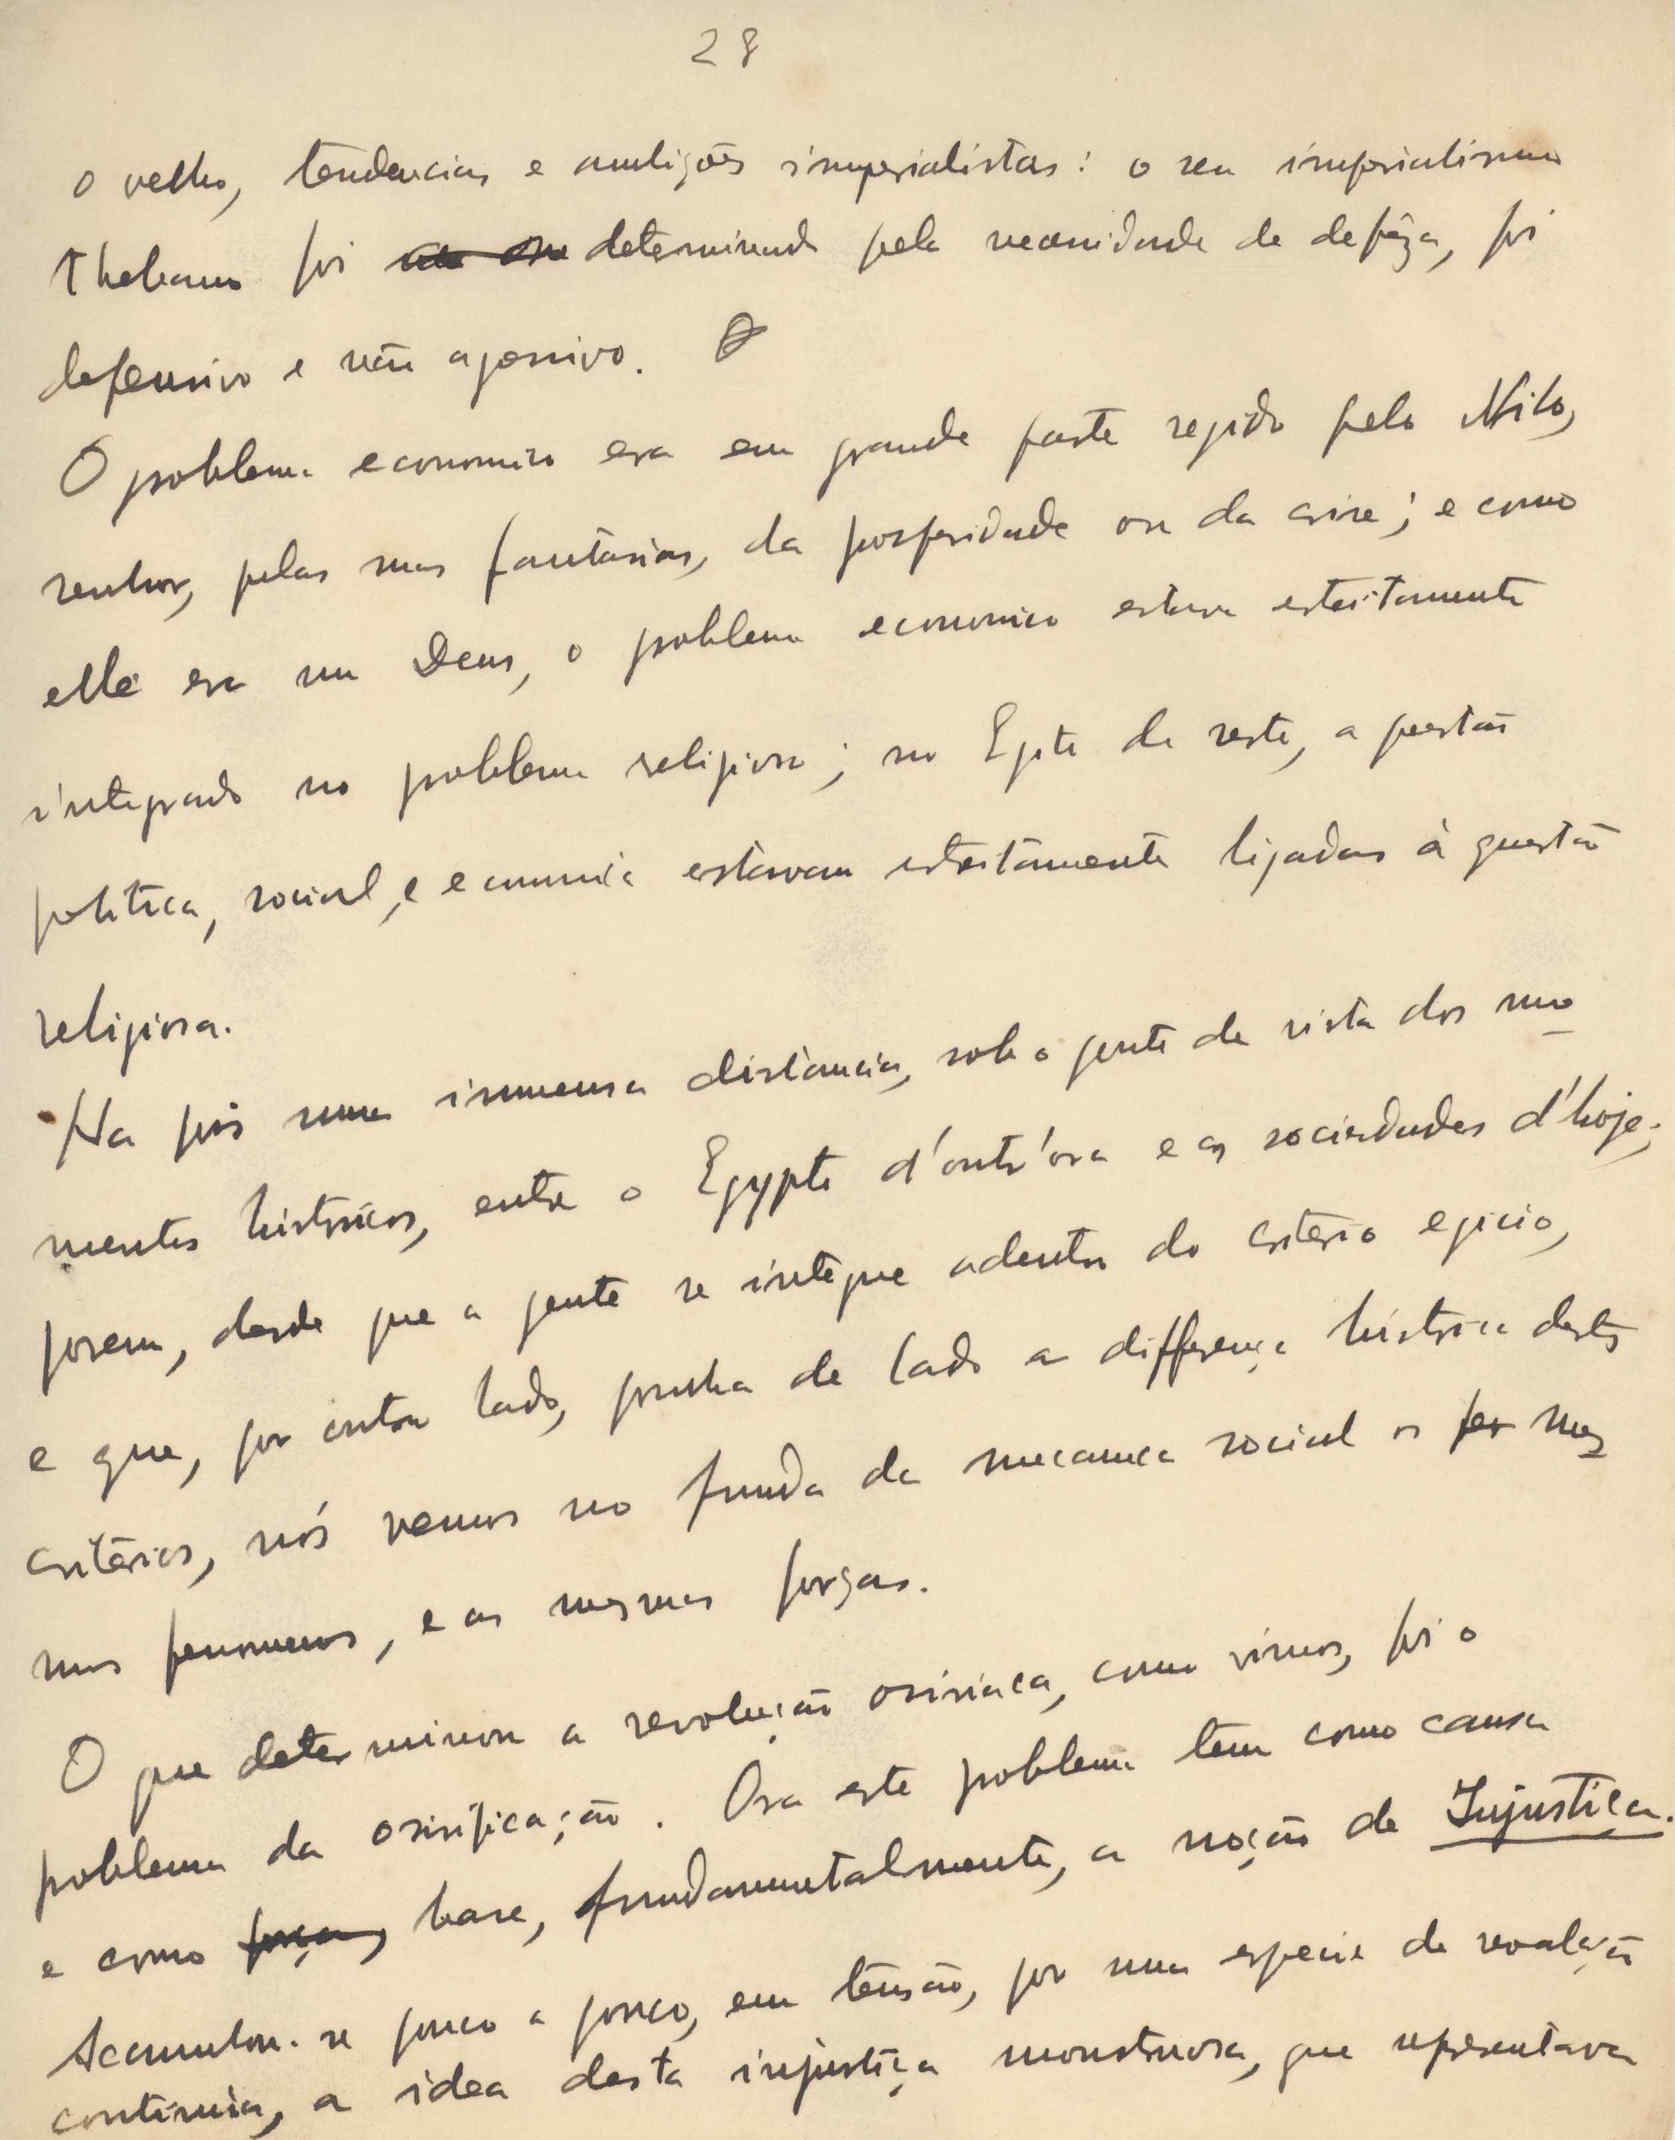 28
o velho, tendencias e ambições imperialistas: o seu imperialismo
thebano foi determinado pela necessidade de defêza, foi
defensivo e não agressivo.
O problema economico era em grande parte regido pelo Nilo,
senhor, pelas suas fantasias, da prosperidade ou da crise; e como
elle era um Deus, o problema economico estava estreitamente
integrado no problema religioso; no Egito de resto, a questão
politica, social, e economica estavam estreitamente ligadas à questão
religiosa.
Ha pois uma immensa distancia, sob o ponto de vista dos mo
mentos históricos, entre o Egypto d'outr'ora e as sociedades d'hoje;
porem, desde que a gente se integre adentro do criterio egicio,
e que, por outro lado, ponha de lado a differença historica destes
criterios, nós vemos no fundo da mecanica social os mes
mos fenomenos, e as mesmas forças.
O que determinou a revolução osiriaca, como vimos, foi o
problema da osirificação. Ora este problema tem como causa
e como base, fundamentalmente, a noção de Injustiça.
Acumulou-se pouco a pouco, em tensão, por uma especie de revolução
continua, a idea desta injustiça monstruosa, que representava